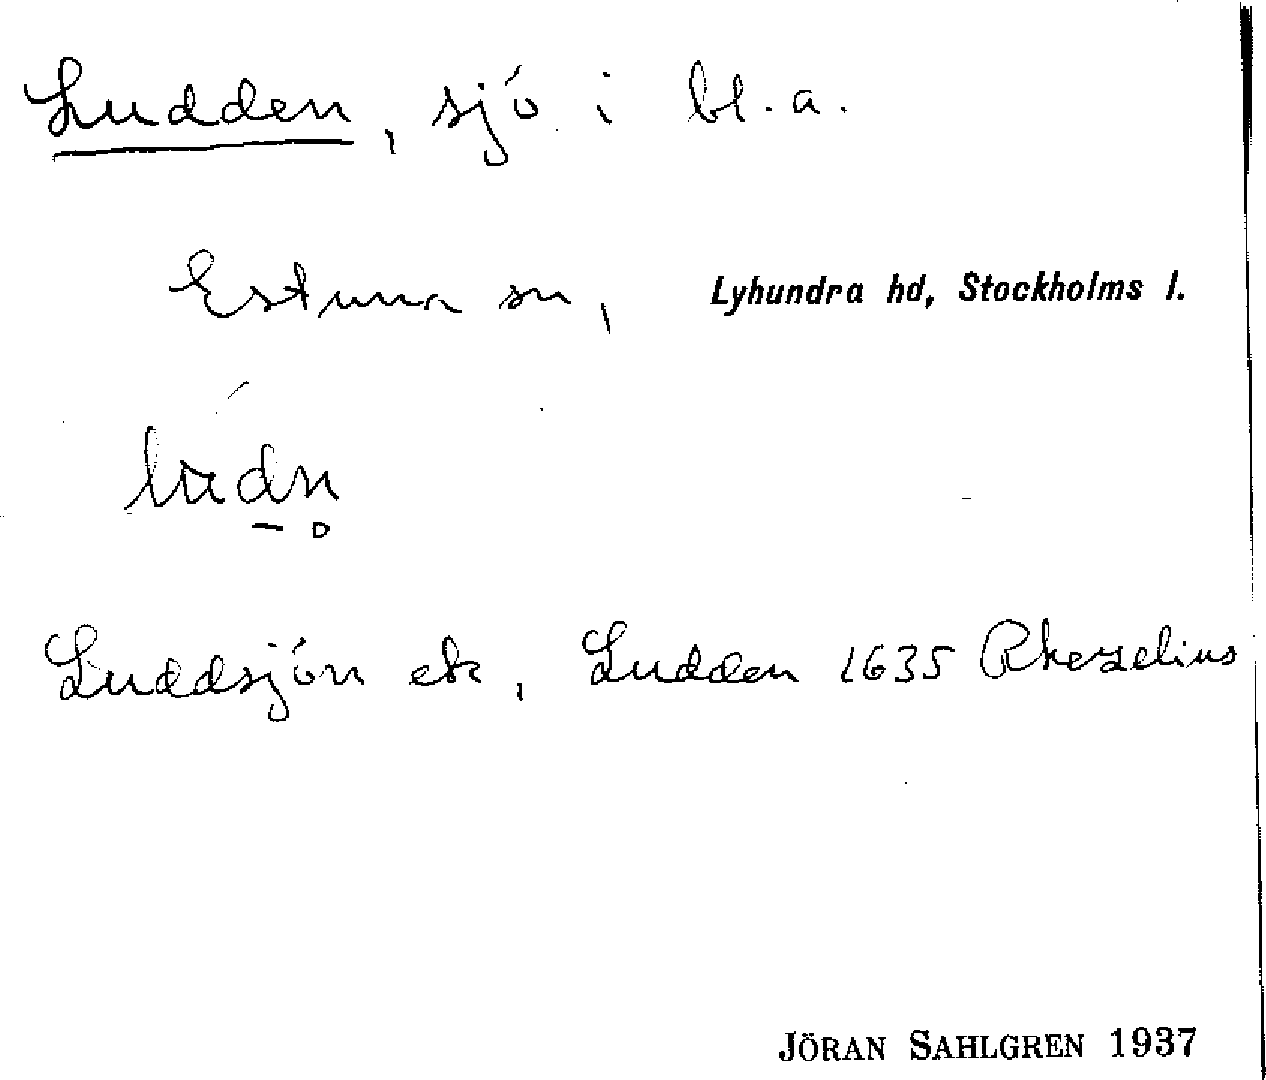 Ludden, sjö i bl. a.
Estuna sn, Lyhundra hd, Stockholms l.
Luddsjön ek, Ludden 1635 Rhezelius
JÖRAN SAHLGREN 1937